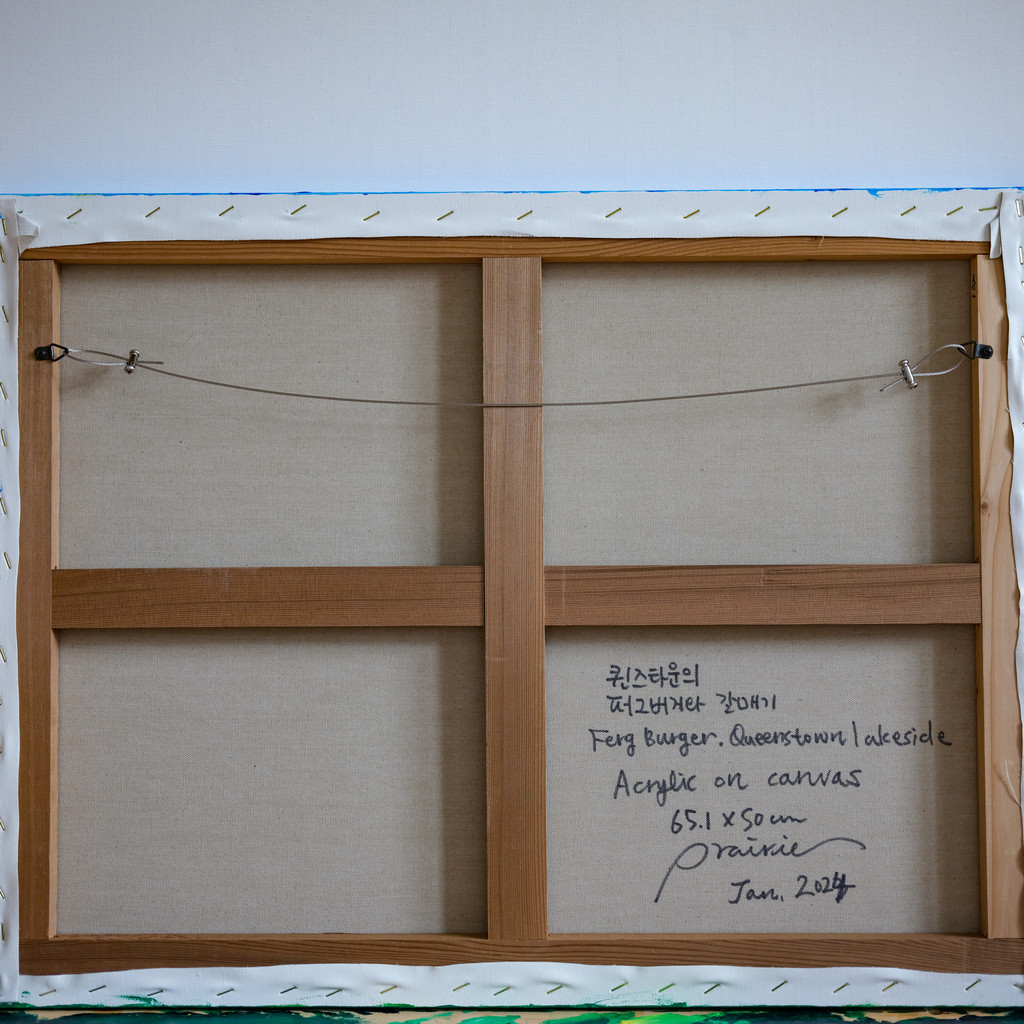 퀸즈타운의
퍼그버거와 갈매기
Ferg Burger. Queenstown lakeside
Acrylic on canvas
65.1 x 50 cm
prairie
Jan. 2024